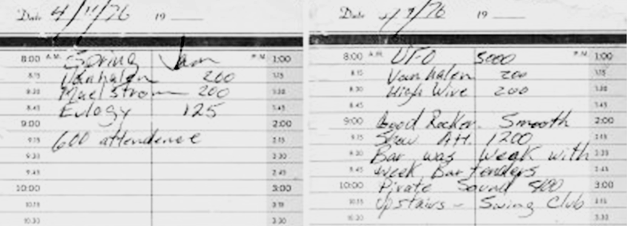 Date 4/11/76 19
8:00 A.M. Spring Jam P.M. 1:00
8:15 Vanhalen 200 1:15
8:30 Maelstrom 200 1:30
8:45 Eulogy 125 1:45
9:00 2:00
9:15 600 attendence 2:15
9:30 2:30
9:45 2:45
10:00 3:00
10:15 3:15
10:30 3:30
Date 4/9/76 19
8:00 A.M. UFO 5000 P.M. 1:00
8:15 Van halen 200 1:15
8:30 High Wire 200 1:30
8:45 1:45
9:00 Good Rocker. Smooth 2:00
9:15 Show Att. 1200 2:15
9:30 Bar was weak with 2:30
9:45 week Bar tenders 2:45
10:00 Pirate Sound 3:00
10:15 Upstairs - Swing Club 3:15
10:30 3:30